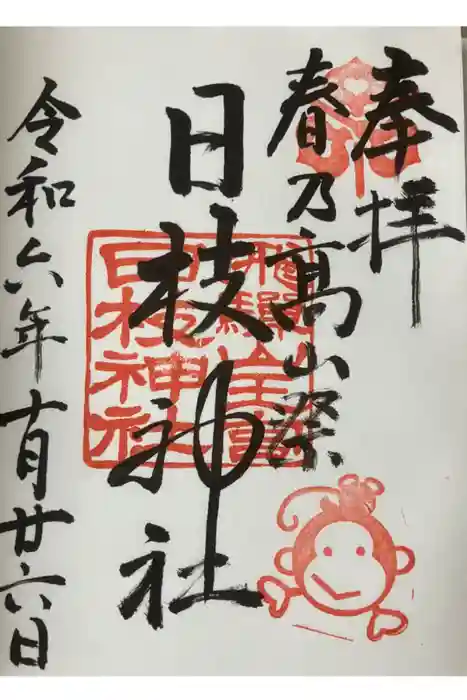 奉拝
春乃高山祭
日枝神社
飛騨全宮
日枝神社
令和六年十月廿六日